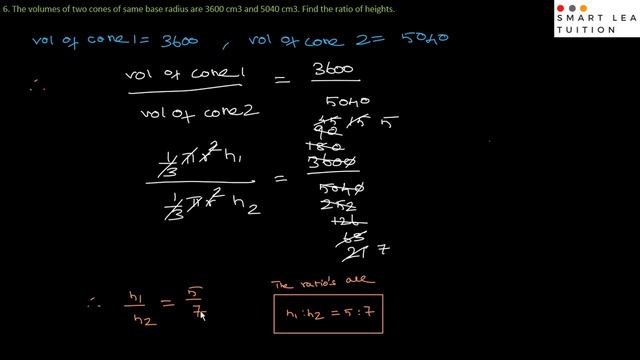 6. The volumes of two cones of same base radius are 3600 cm3 and 5040 cm3. Find the ratio of heights.
SMART LEA
TUITION
vol of cone 1 = 3600 , vol of cone 2 = 5040
∴ vol of cone 1 / vol of cone 2 = 3600 / 5040
45 15 5
90
180
1/3 πr² h₁ / 1/3 πr² h₂ = 3600 / 5040
252
126
63
21 7
∴ h₁ / h₂ = 5 / 7
The ratio's are
h₁ : h₂ = 5 : 7